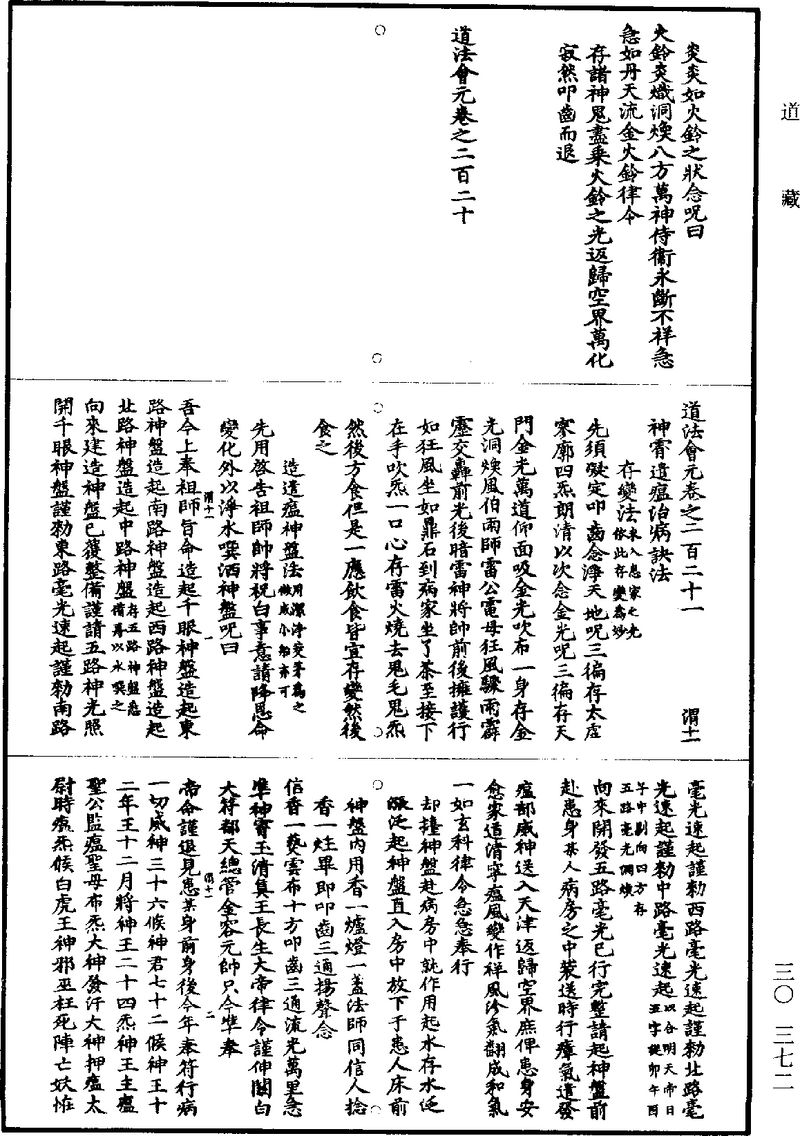 道藏
炎炎如火鈴之狀念呪曰
火鈴炎熾洞煥八方萬神侍衛永斷不祥急
急如丹天流金火鈴律令
存諸神鬼盡乘火鈴之光返歸空界萬化
寂然叩齒而退
道法會元卷之二百二十
道法會元卷之二百二十一 渭十一
神霄遣瘟治病訣法
存變法未入患家之先依此存變為妙
先須凝定叩齒念淨天地呪三徧存太虛
寥廓四炁朗清以次念金光呪三徧存天
門金光萬道仰面吸金光吹布一身存金
光洞煥風伯雨師雷公電母狂風驟雨霹
靂交轟前光後暗雷神將帥前後擁護行
如狂風坐如鼎石到病家坐了茶至接下
在手吹炁一口心存雷火燒去鬼毛鬼炁
然後方食但是一應飲食皆宜存變然後
食之
造遣瘟神盤法用潔淨茭茅為之做成小船亦可
先用啓告祖師帥將祝白事意請降恩命
變化外以淨水噀洒神盤呪曰
吾今上奉祖師旨命造起千眼神盤造起東
路神盤造起南路神盤造起西路神盤造起
北路神盤造起中路神盤存五路神盤悉備再以水噀之
向來建造神盤已獲整備謹請五路神光照
開千眼神盤謹勑東路毫光速起謹勑南路
渭十一 一
毫光速起謹勑西路毫光速起謹勑北路毫
光速起謹勑中路毫光速起以合明天帝日五字從卯午酉子中剔向四方存五路毫光烱煥
向來開發五路毫光已行完整請起神盤前
赴患身某人病房之中蒙送時行瘴氣遣發
瘟部威神送入天津返歸空界庶俾患身安
愈家道清寧瘟風變作祥風沴氣翻成和氣
一如玄科律令急急奉行
却擡神盤赴病房中就作用起水存水泛
漲泛起神盤直入房中放下于患人床前
神盤內用香一爐燈一盞法師同信人捻
香一炷畢即叩齒三通揚聲念
信香一爇雲布十方叩齒三通流光萬里急
準神霄玉清真王長生大帝律令謹伸關白
大符都天總管金容元帥只今準奉
帝命謹退見患某身前身後今年奉符行病
一切威神三十六候神君七十二候神王十
二年王十二月將神王二十四炁神王主瘟
聖公監瘟聖母布炁大神發汗大神押瘟太
尉時瘟炁候白虎王神邪巫枉死陣亡妖怪
渭十一 二
三〇 三七二